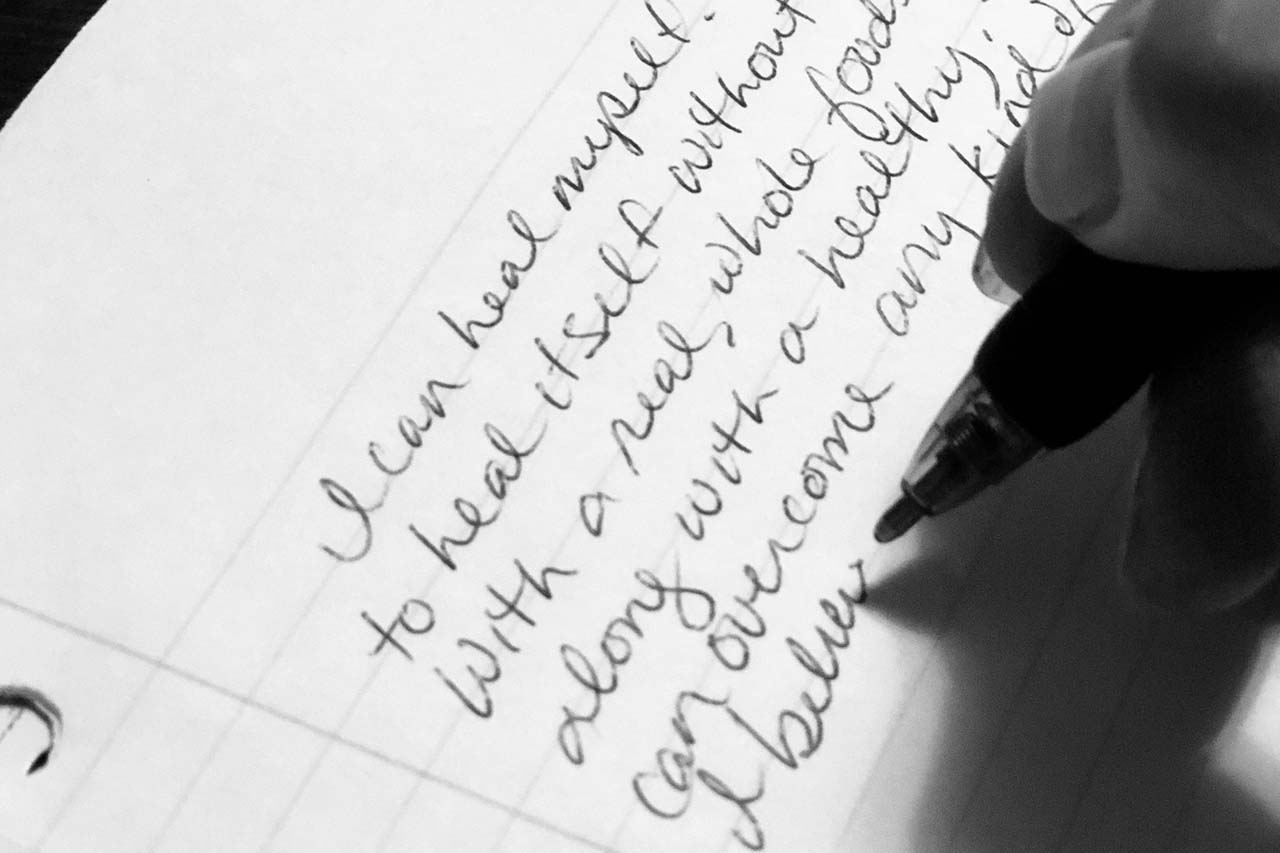 I can heal myself.
to heal itself without
with a real, whole foods
along with a healthy,
can overcome any kind of
I believ